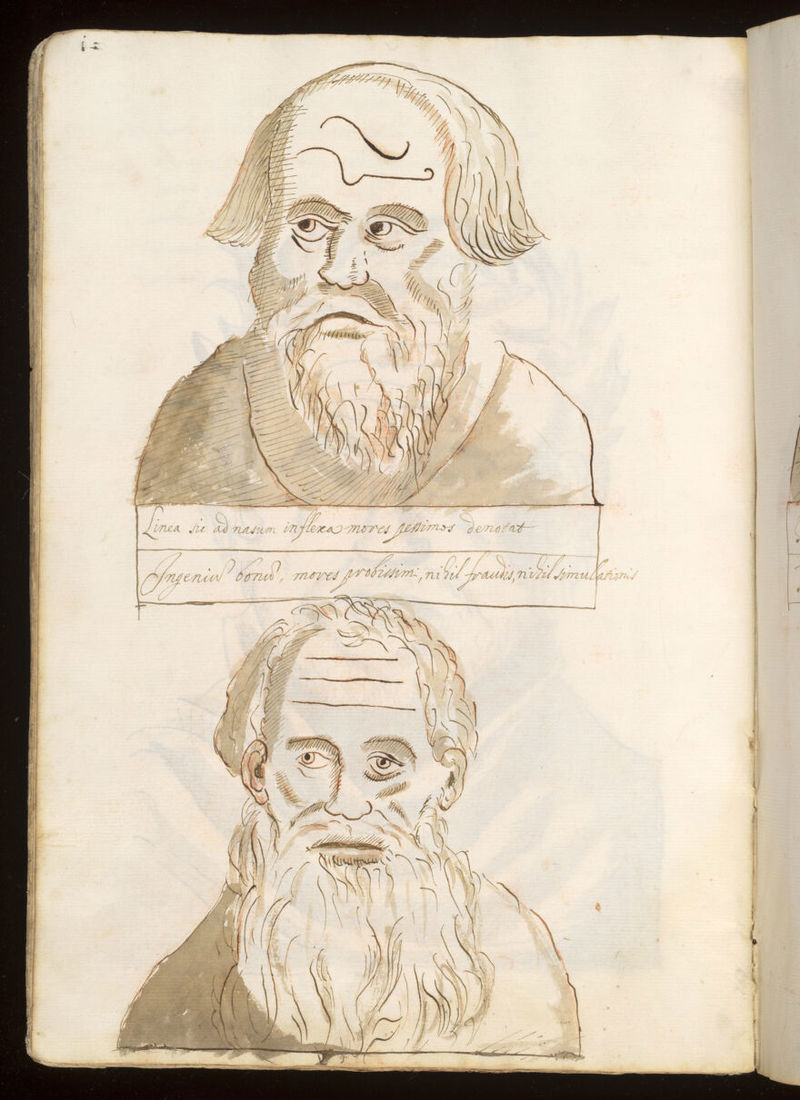 Linea sic ad nasum inflexa mores pessimos denotat
Ingeniũ bonũ, mores probissimi, nihil fraudis, nihil simulationis